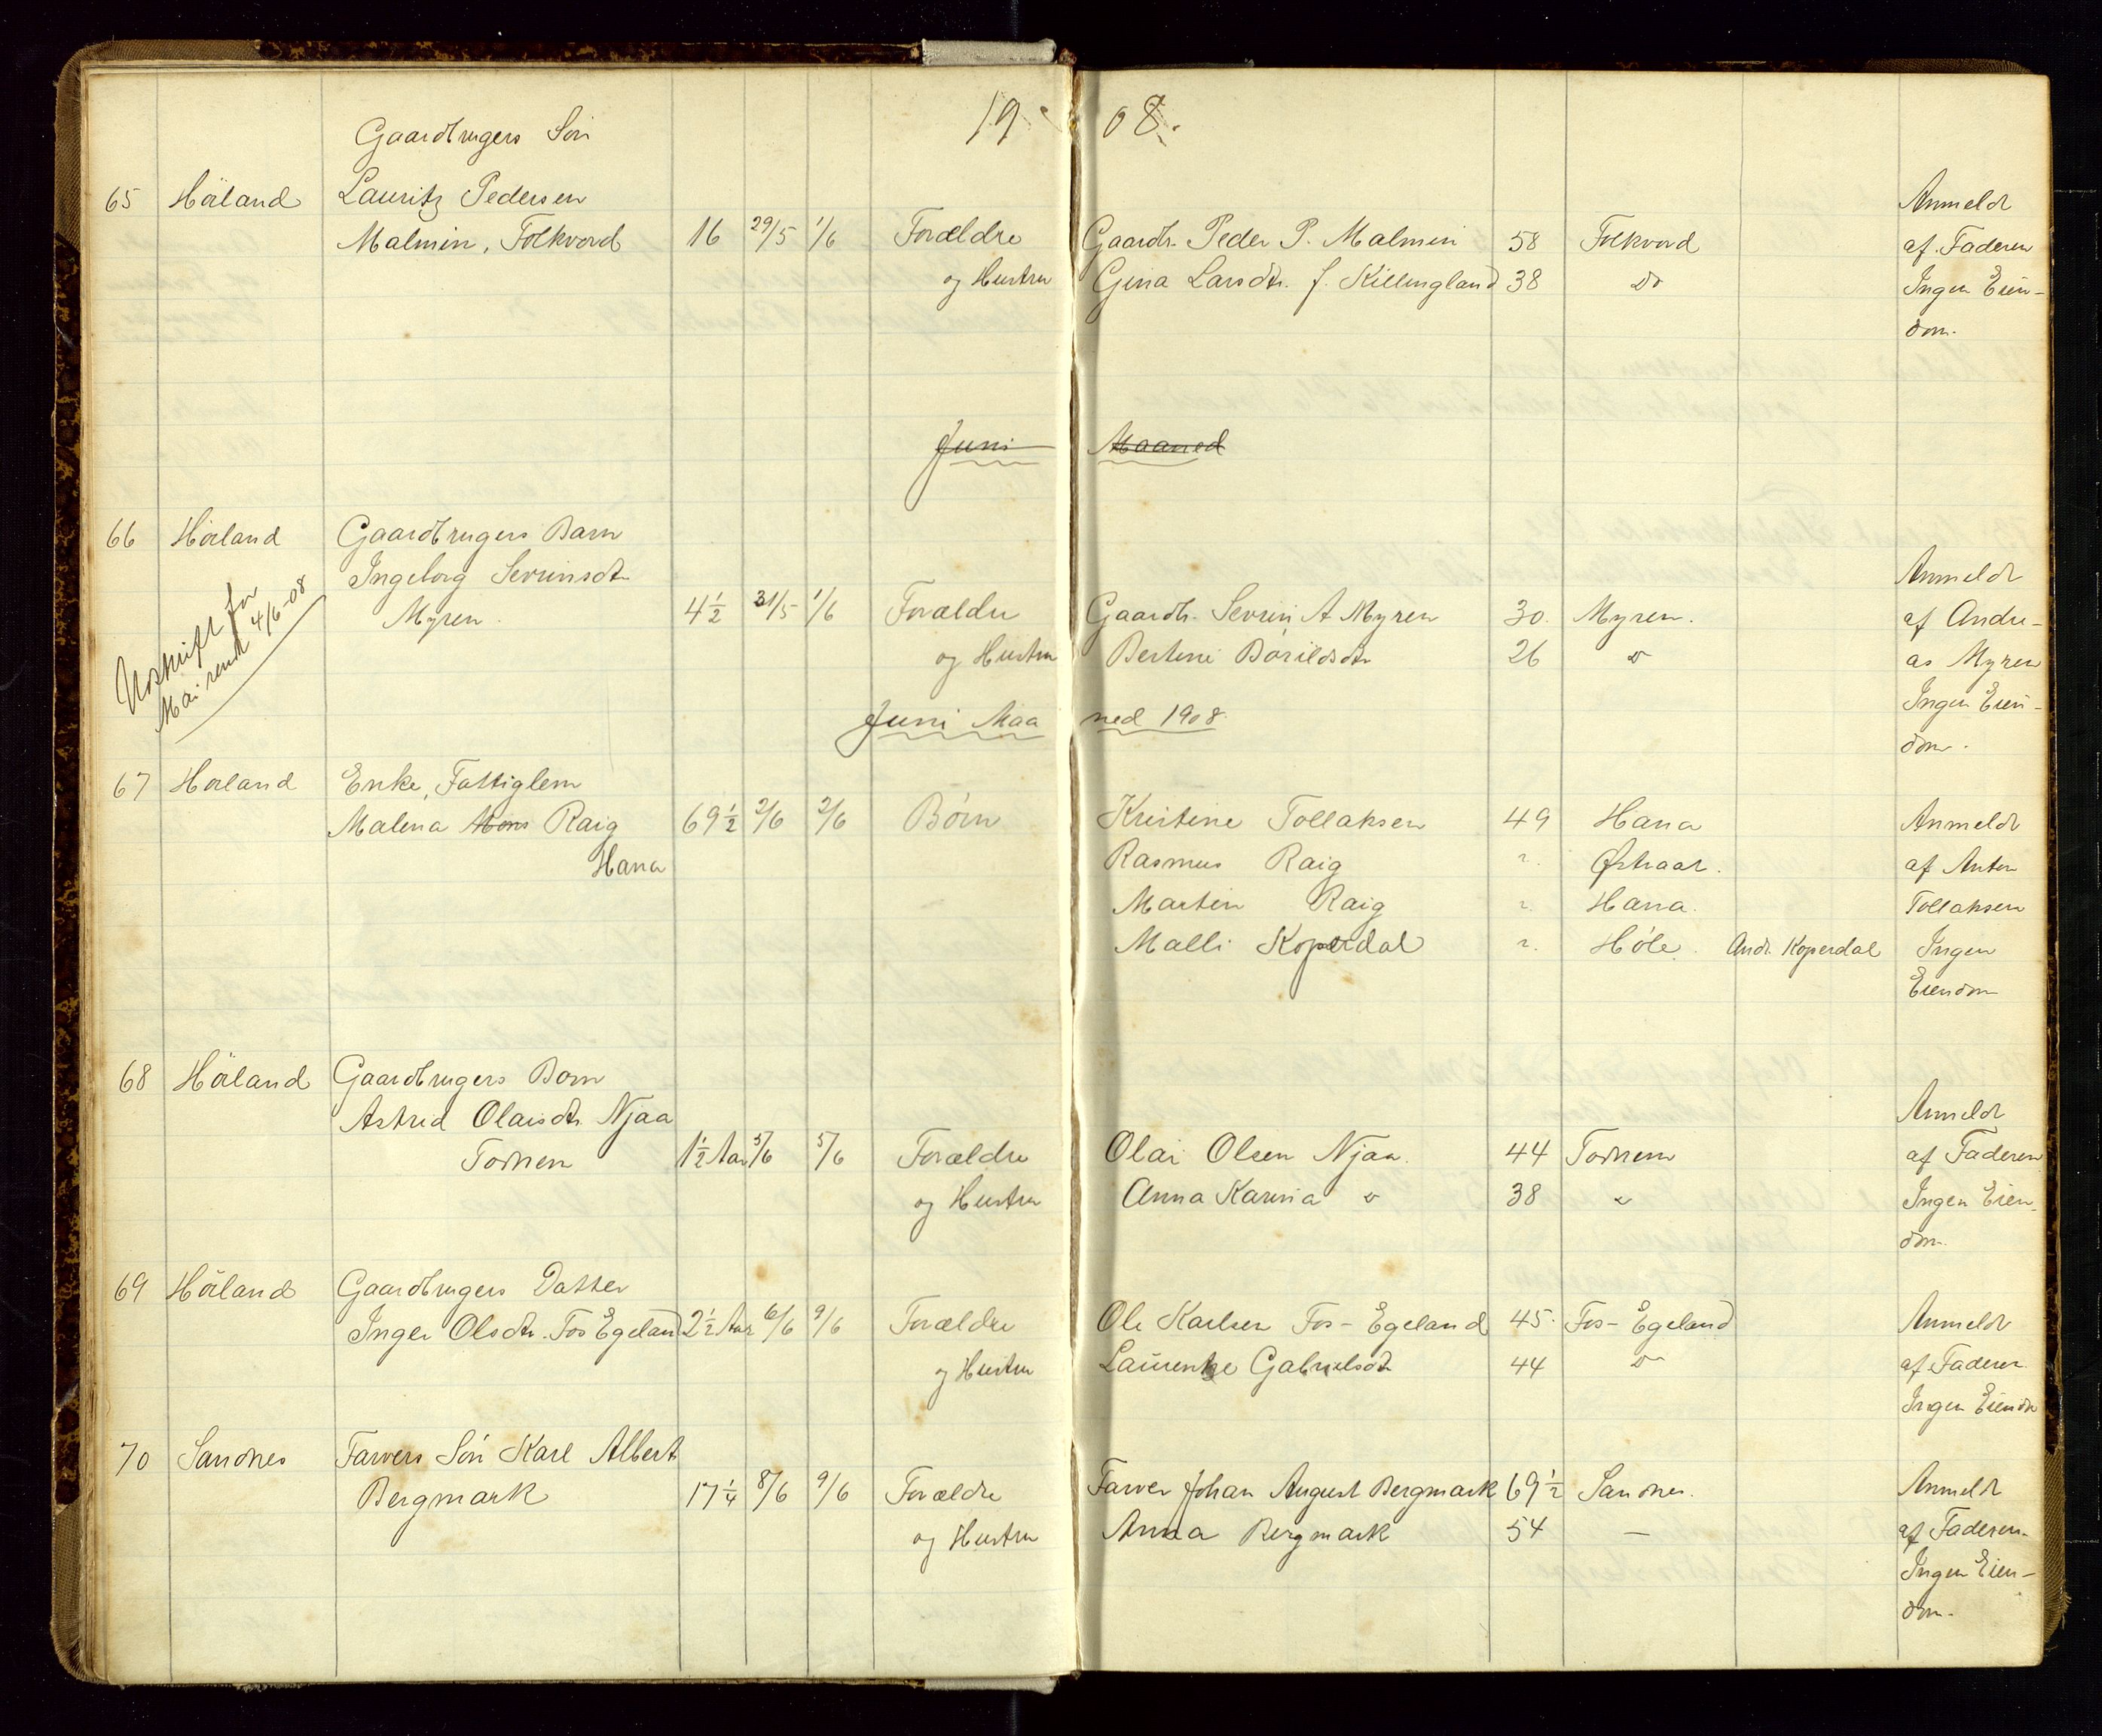 19 08.
Gaardbrugers Søn
65 Høiland Lauritz Pedersen Anmeldt
Malmin, Folkvord 16 29/5 1/6 Forældre Gaardbr. Peder P. Malmin 58 Folkvord af Faderen
og Hustru Gina Larsdtr. f. Killingland 38 Do Ingen Eien-
dom.
Juni Maaned
66 Høiland Gaardbrugers Barn
Ingeborg Sevrinsdtr Anmeldt
Myren. 4½ 31/5 1/6 Forældre Gaardbr. Sevrin A Myren 30. Myren. af Andre-
og Hustru Bertine Bårildsdtr 26 Do as Myren
Udskrift for
Mai sendt 4/6-08
Ingen Eien-
Juni Maa ned 1908.
dom.
67 Høiland Enke, Fattiglem
Malena Mons Raig 69½ 2/6 2/6 Børn Kristine Tollaksen 49 Hana Anmeldt
Hana Rasmus Raig ?. Østraat. af Anton
Martin Raig ?. Hana. Tollaksen
Malli Koperdal ?. Høle. Andr. Koperdal Ingen
Eiendom
68 Høiland Gaardbrugers Barn
Astrid Olaisdtr. Njaa Anmeldt
Tornen 1½ Aar 5/6 5/6 Forældre Olai Olsen Njaa. 44 Tornem af Faderen
og Hustru Anna Karina Do 38 Do Ingen Eien-
dom.
69 Høiland Gaardbrugers Datter
Inger Olsdtr. Fos Egeland 2½ Aar 6/6 9/6 Forældre Ole Karlsen Fos-Egeland 45. Fos-Egeland Anmeldt
og Hustru Laurentze Gabrielsdt 44 Do af Faderen
Ingen Eiendom
70 Sandnes Farvers Søn Karl Albert
Bergmark 17¼ 8/6 9/6 Forældre Farver Johan August Bergmark 69½ Sandnes. Anmeldt
og Hustru Anna Bergmark 54 — af Faderen.
Ingen Eien-
dom.